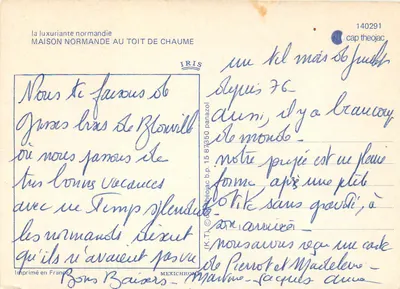 la luxuriante normandie
MAISON NORMANDE AU TOIT DE CHAUME
140291
cap theojac
IRIS
Nous te faisons de
grosses bises de Blonville
où nous passons de
très bonnes vacances
avec un Temps splendide
les normands disent
qu'ils n'avaient pas vu
un tel mois de juillet
depuis 76 -
aussi, il y a beaucoup
de monde -
notre est en pleine
forme, après une ptite
otite sans gravité, à
son arrivée -
nous avons reçu une carte
de Pierrot et Madeleine -
Bons Baisers - Martine - Jacques Anna
Imprimé en France
MEXICHROME
(K.T.) theojac b.p. 15 87350 panazol